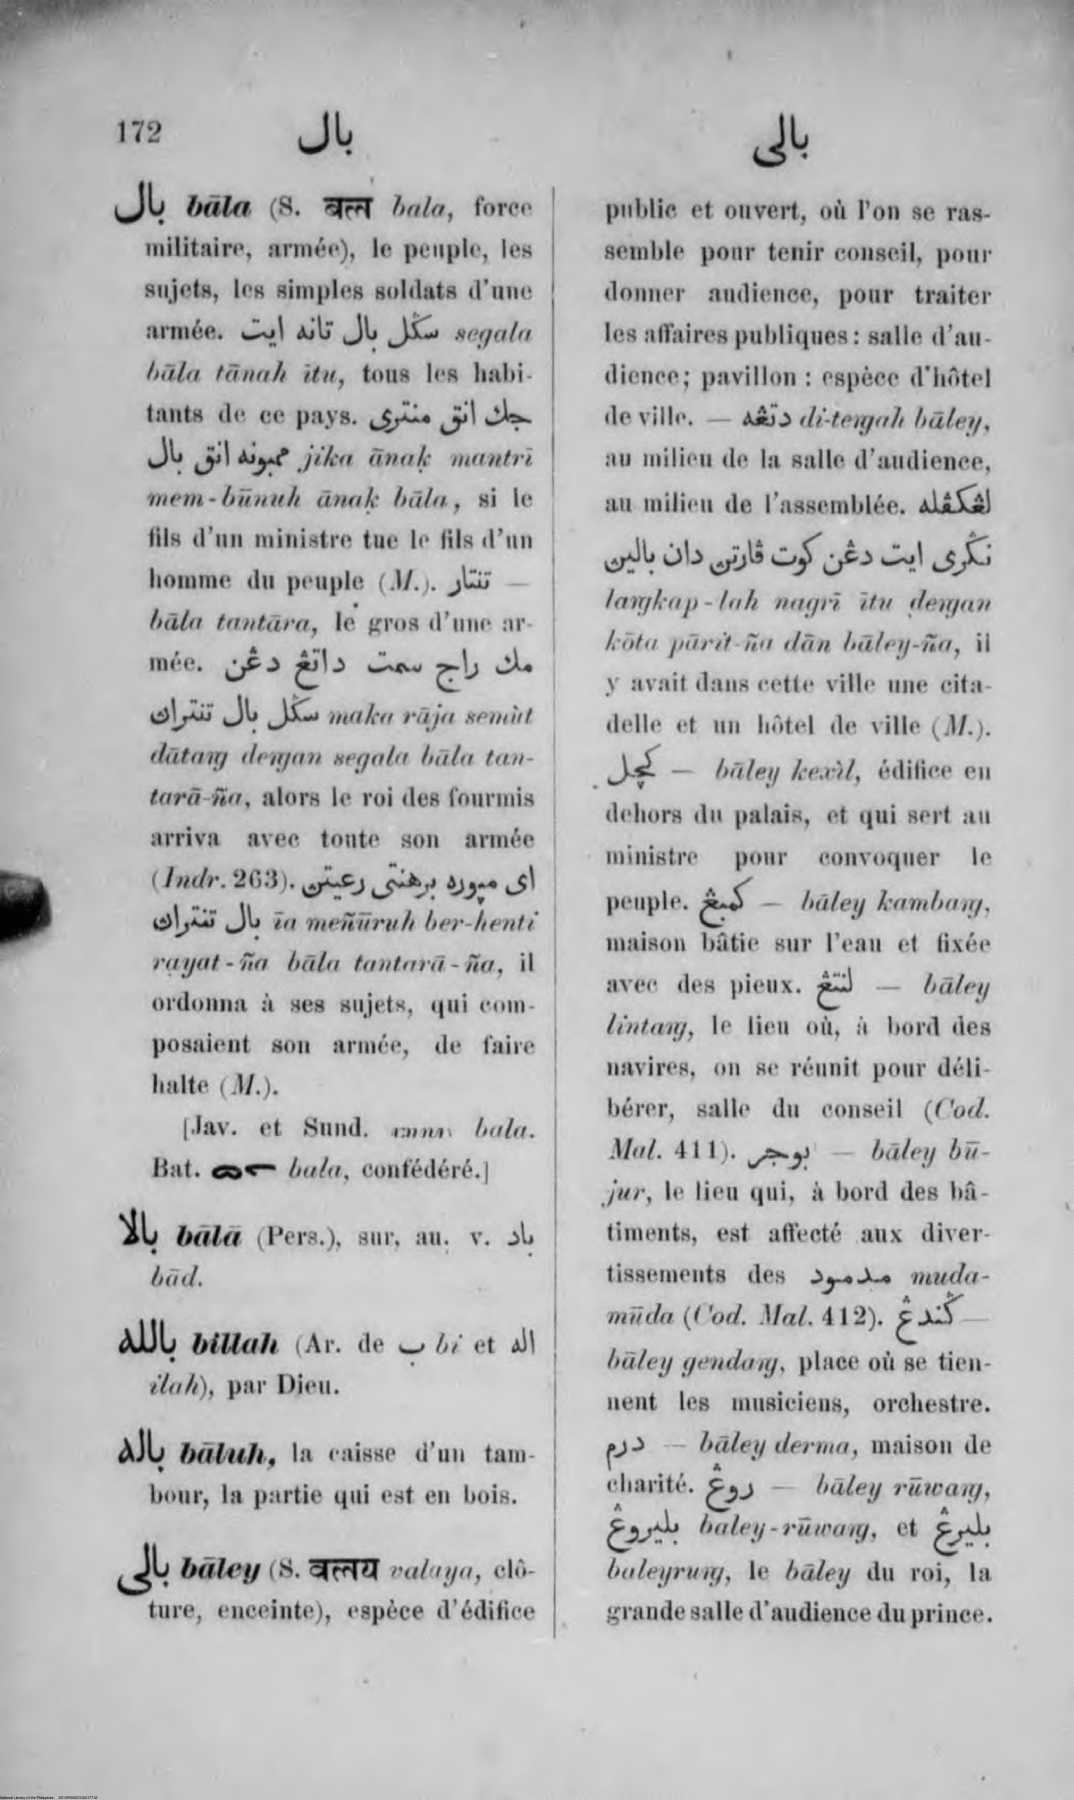 172
بال
بالى
بال bāla (S. बल bala, force
militaire, armée), le peuple, les
sujets, les simples soldats d'une
armée. سڬل بال تانه ايت segala
bāla tānah ītu, tous les habi-
tants de ce pays. جك انق منترى
ممبونه انق بال jika ānaḳ mantrī
mem-būnuh ānaḳ bāla, si le
fils d'un ministre tue le fils d'un
homme du peuple (M.). تنتار —
bāla tantāra, le gros d'une ar-
mée. مك راج سمت داتڠ دڠن
سڬل بال تنتران maka rāja semùt
dātaŋ deŋan segala bāla tan-
tarā-ña, alors le roi des fourmis
arriva avec toute son armée
(Indr. 263). اى مپوره برهنتى رعيتن
بال تنتران īa meñūruh ber-henti
rayat-ña bāla tantarā-ña, il
ordonna à ses sujets, qui com-
posaient son armée, de faire
halte (M.).
[Jav. et Sund. bala.
Bat. bala, confédéré.]
بالا bālā (Pers.), sur, au. v. باد
bād.
بالله billah (Ar. de ب bi et اله
ilah), par Dieu.
باله bāluh, la caisse d'un tam-
bour, la partie qui est en bois.
بالى bāley (S. वलय valaya, clô-
ture, enceinte), espèce d'édifice
public et ouvert, où l'on se ras-
semble pour tenir conseil, pour
donner audience, pour traiter
les affaires publiques: salle d'au-
dience; pavillon: espèce d'hôtel
de ville. — دتڠه di-teŋah bāley,
au milieu de la salle d'audience,
au milieu de l'assemblée. لڠكڤله
نڬرى ايت دڠن كوت ڤارتن دان بالين
laŋkap-lah nagrī ītu deŋan
kōta pārit-ña dān bāley-ña, il
y avait dans cette ville une cita-
delle et un hôtel de ville (M.).
كچل — bāley kexìl, édifice en
dehors du palais, et qui sert au
ministre pour convoquer le
peuple. كمبڠ — bāley kambaŋ,
maison bâtie sur l'eau et fixée
avec des pieux. لنتڠ — bāley
lintaŋ, le lieu où, à bord des
navires, on se réunit pour déli-
bérer, salle du conseil (Cod.
Mal. 411). بوجر — bāley bū-
jur, le lieu qui, à bord des bâ-
timents, est affecté aux diver-
tissements des مدمود muda-
mūda (Cod. Mal. 412). ڬندڠ —
bāley gendaŋ, place où se tien-
nent les musiciens, orchestre.
درم — bāley derma, maison de
charité. روڠ — bāley rūwaŋ,
بليروڠ baley-rūwaŋ, et بليرڠ
baleyruŋ, le bāley du roi, la
grande salle d'audience du prince.